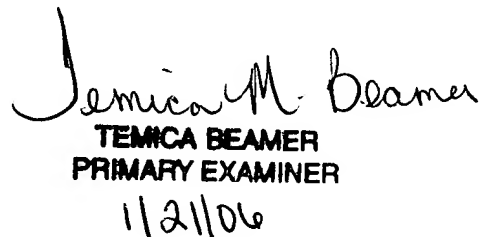 Temica M. Beamer
TEMICA BEAMER
PRIMARY EXAMINER
1/21/06